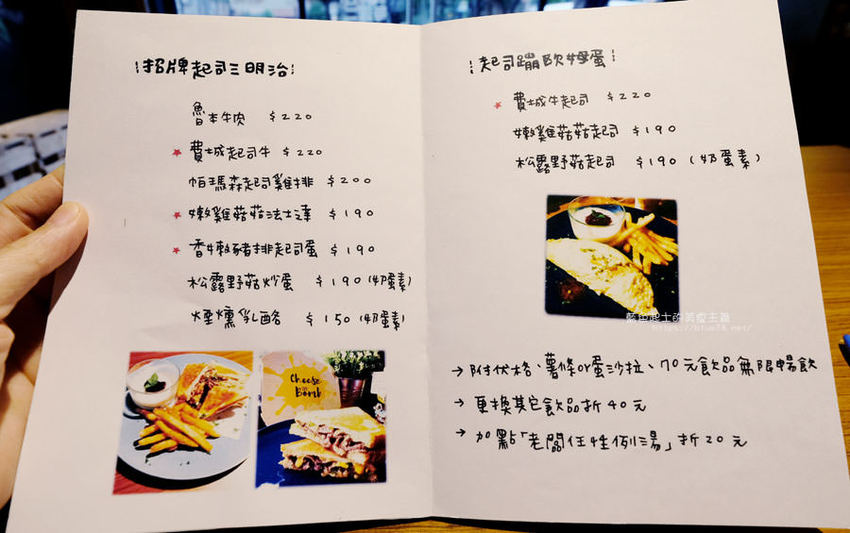 招牌起司三明治
魯本牛肉 $220
★ 費城起司牛 $220
帕瑪森起司雞排 $200
★ 嫩雞菇菇法士達 $190
★ 香嫩豬排起司蛋 $190
松露野菇炒蛋 $190(奶蛋素)
煙燻乳酪 $150(奶蛋素)
Cheese
Bomb
起司蹦歐姆蛋
★ 費城牛起司 $220
嫩雞菇菇起司 $190
松露野菇起司 $190(奶蛋素)
藍色起士的美食主義
https://blue76.net/
→ 附優格、薯條or蛋沙拉、70元飲品無限暢飲
→ 更換其它飲品折40元
→ 加點「老闆任性例湯」折20元